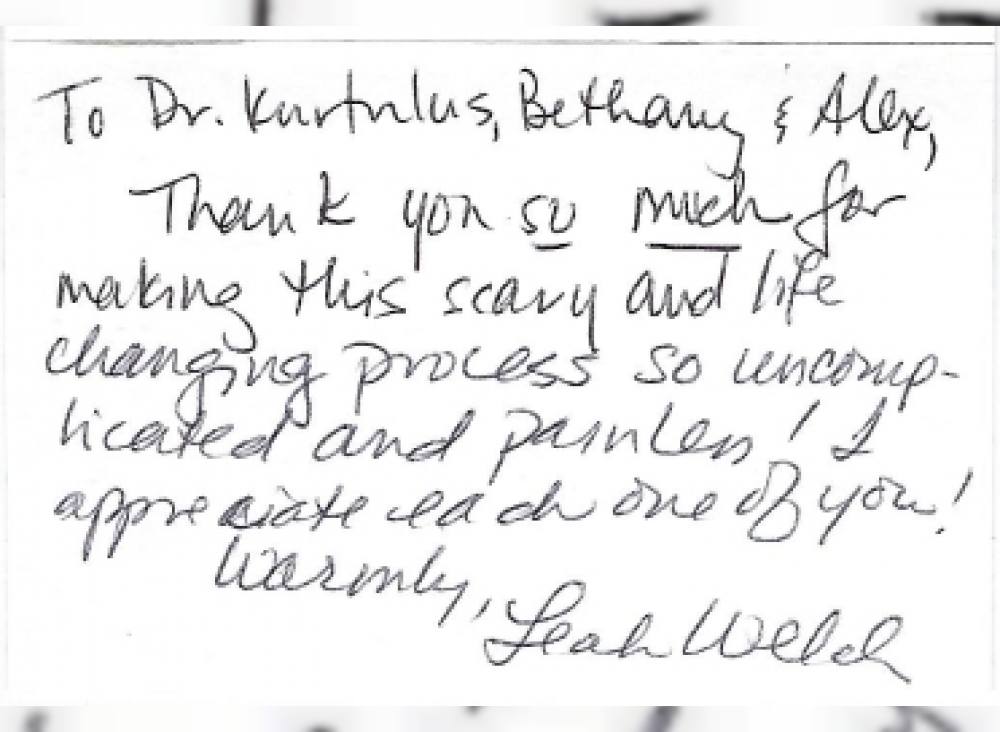 To Dr. Kurtulus, Bethany & Alex,
Thank you so much for
making this scary and life
changing process so uncomp-
licated and painless! I
appreciate each one of you!
Warmly,
Leah Welch